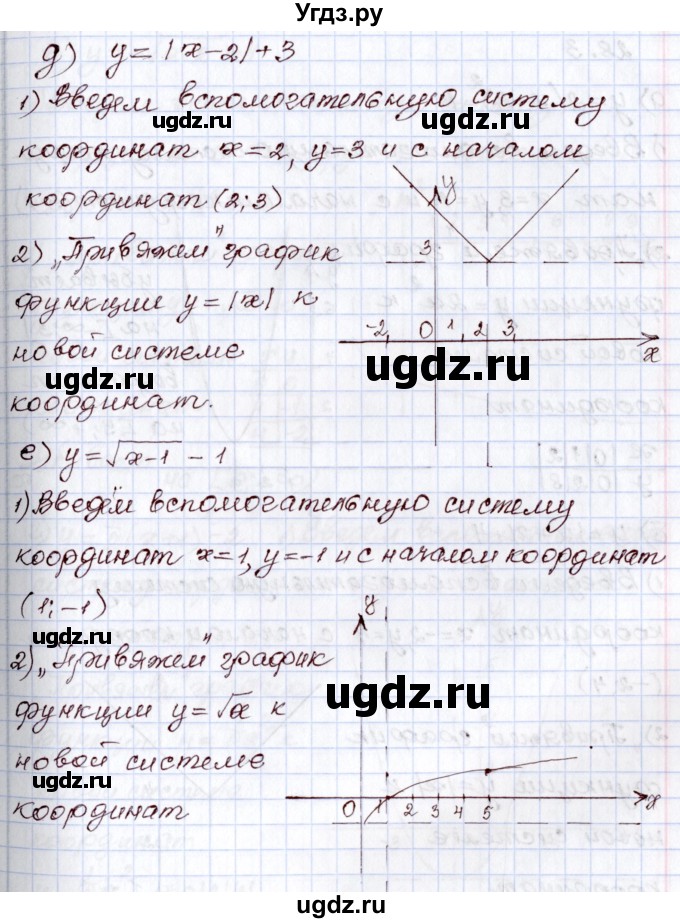 Угдз.ру
д) y = |x-2|+3
1) Введем вспомогательную систему
ugdz.ru
ugdz.ru
координат x=2, y=3 и с началом
координат (2; 3)
2) „Привяжем" график
функции y = |x| к
новой системе
ugdz.ru
координат.
y
3
-2 0 1 2 3 x
ugdz.ru
е) y = √x-1 - 1
1) Введём вспомогательную систему
ugdz.ru
координат x=1, y=-1 и с началом координат
(1; -1)
ugdz.ru
2) „Привяжем" график
функции y = √x к
новой системе
координат
ugdz.ru
y
ugdz.ru
0 1 2 3 4 5 x
ugdz.ru
ugdz.ru